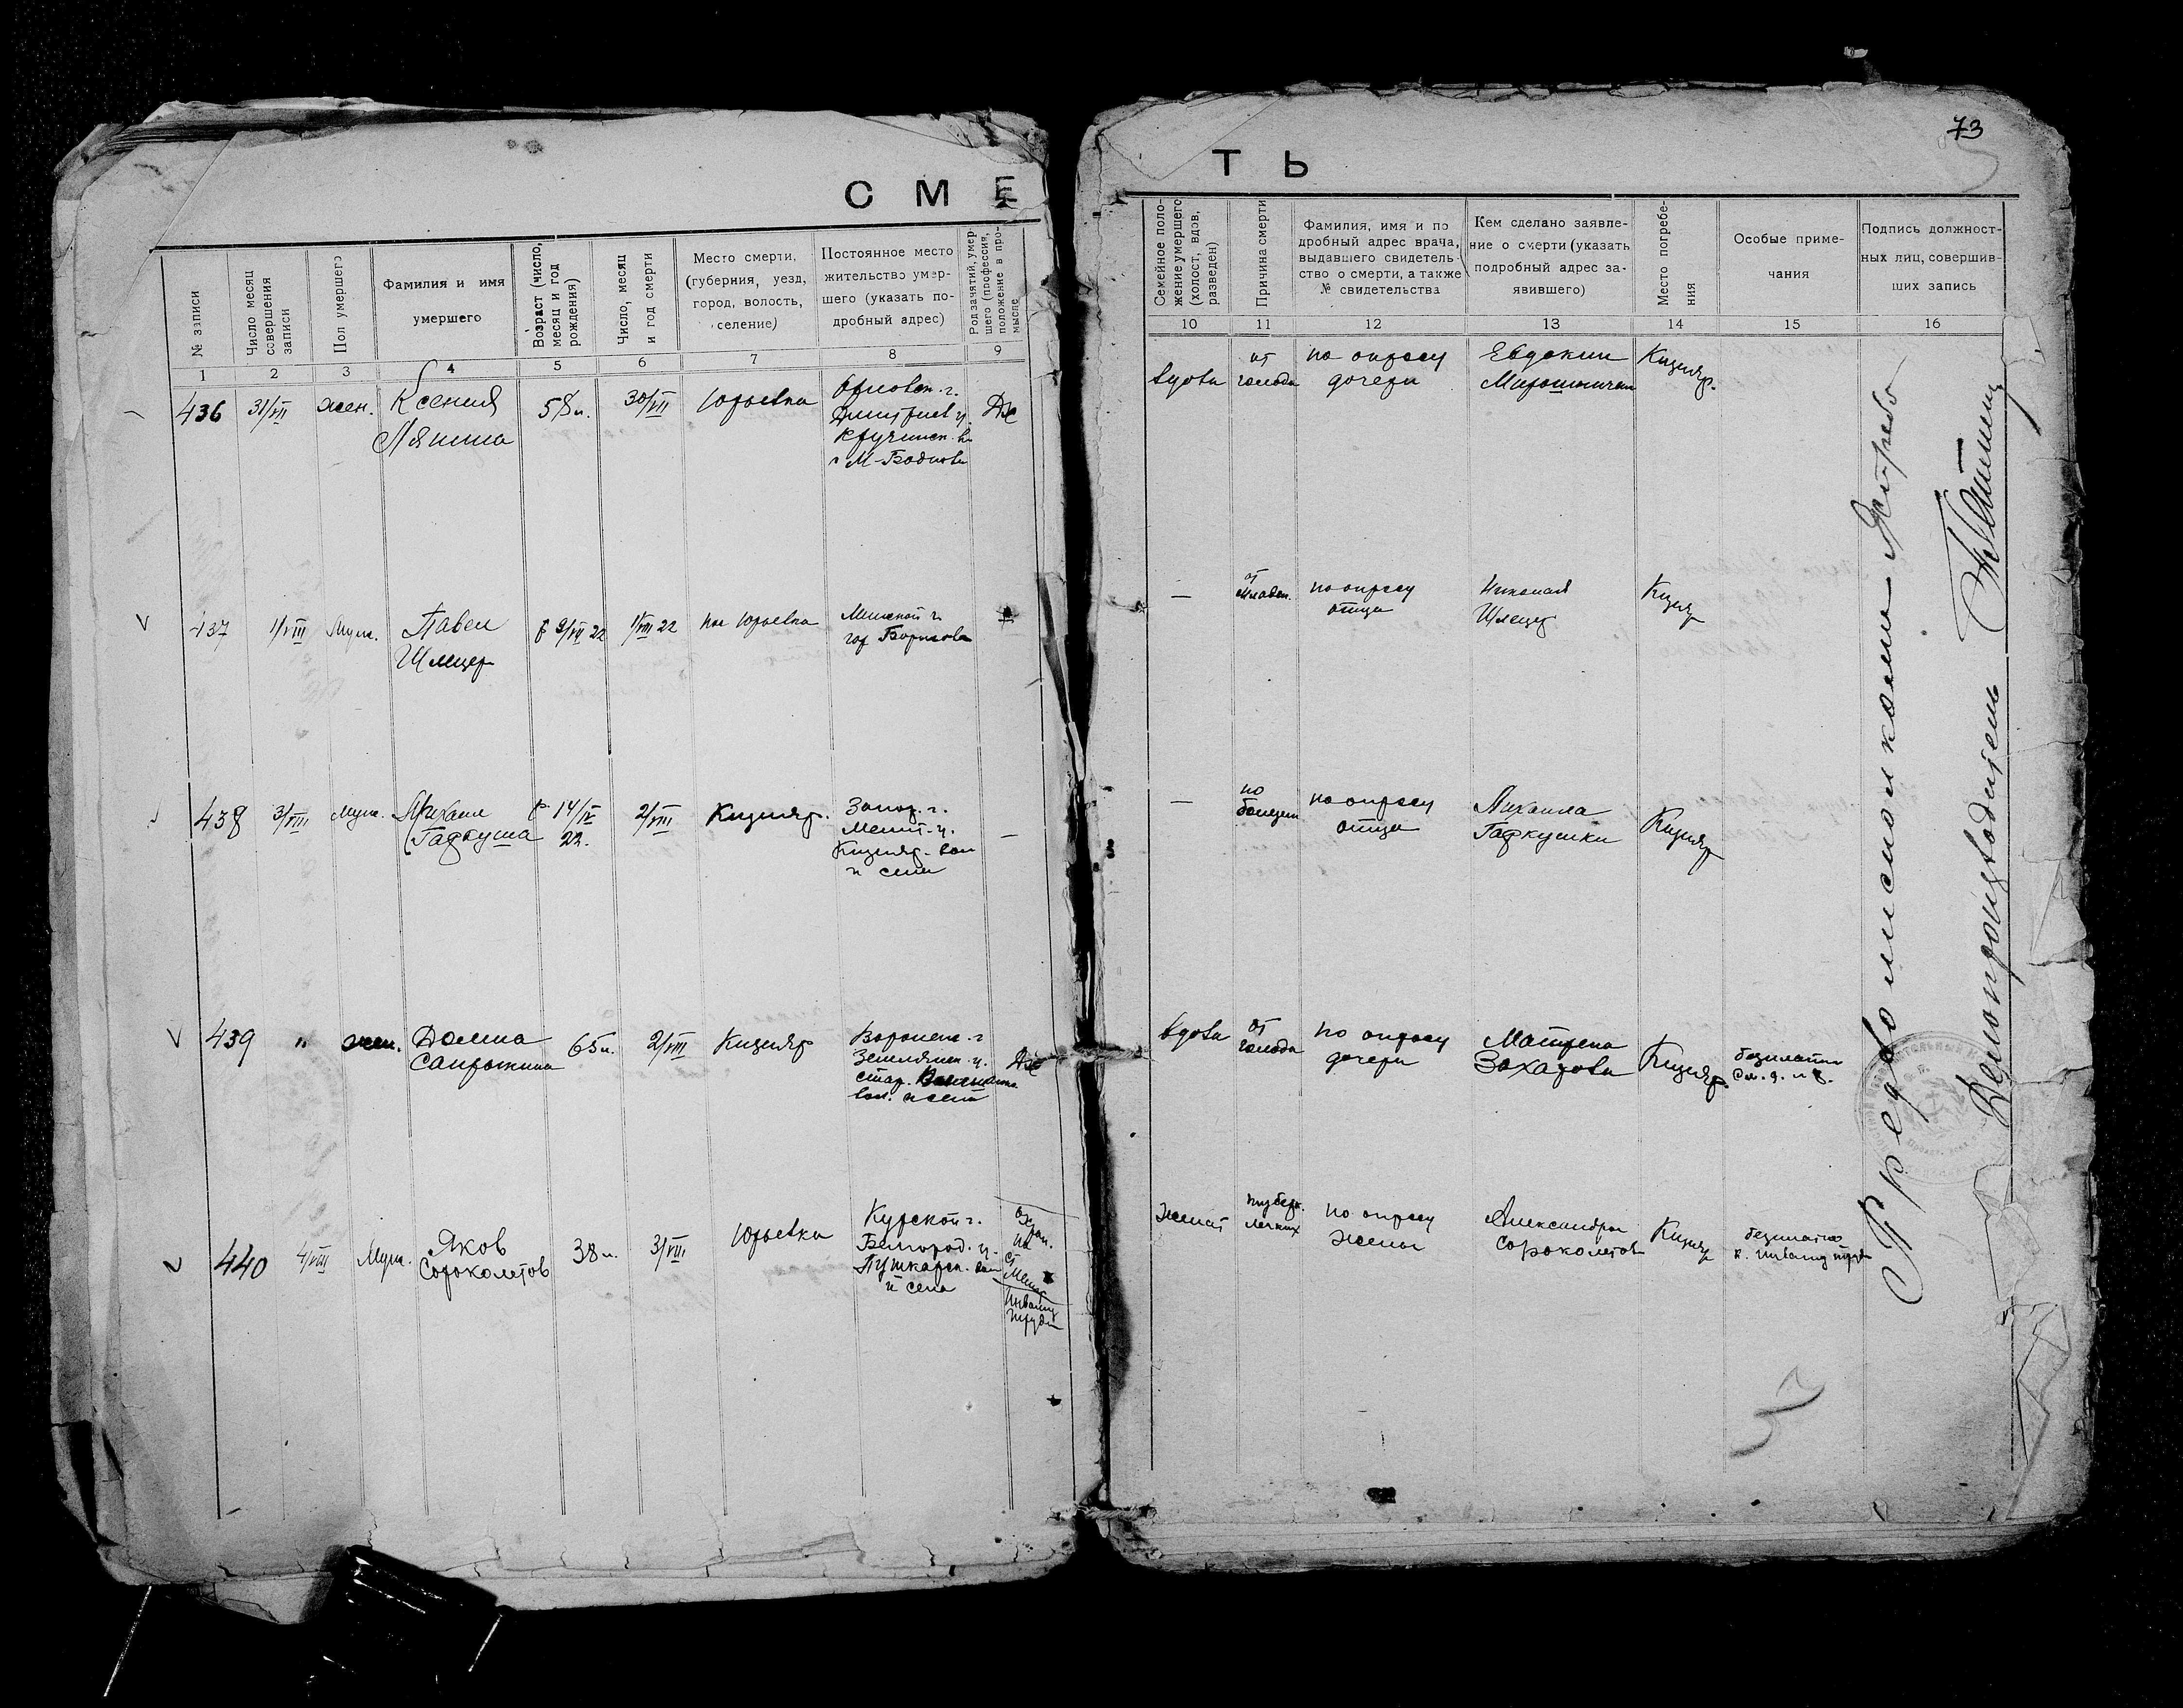 73
С М Е
Т Ь
№ записи
Число месяц совершения записи
Пол умершего
Фамилия и имя
умершего
Возраст (число, месяц и год рождения)
Число, месяц и год смерти
Место смерти,
(губерния, уезд,
город, волость,
селение)
Постоянное место
жительство умер-
шего (указать по-
дробный адрес)
Род занятий, умер-
шего (профессия,
положение в про-
мысле
1 2 3 4 5 6 7 8 9
Семейное поло-
жение умершего
(холост, вдов,
разведен)
Причина смерти
Фамилия, имя и по
дробный адрес врача,
выдавшего свидетель-
ство о смерти, а также
№ свидетельства
Кем сделано заявле-
ние о смерти (указать
подробный адрес за-
явившего)
Место погребе-
ния
Особые приме-
чания
Подпись должност-
ных лиц, совершив-
ших запись
10 11 12 13 14 15 16
436 31/VII жен.
Ксения
Ляпина
58 л. 30/VII Юрьевка
Орловск. г.
Дмитриев у.
М-Бобнова
Дх
вдова
от
голода
по опросу
дочери
Евдокии
Мирошничен
Кизияр.
437 1/VIII Муж.
Павел
Шмецер
р 9/VII 22 1/VIII 22 пос Юрьевка
Минской г
гор Борисова
—
от
младен.
по опросу
отца
Николай
Шмецер
Кизияр
438 3/VIII Муж.
Михаил
Гаркуша
р 14/IV
22.
2/VIII Кизияр.
Запор. г.
Мелит. у.
Кизияр. вол
и села
—
—
по
болезни
по опросу
отца
Михаила
Гаркушки
Кизияр
439 " жен.
Домна
Сапрыкина
65 л. 2/VIII Кизияр
Воронеж. г
Землянск. у.
стар.
вол. и села
Дх
вдова
от
голода
по опросу
дочери
Матрена
Захарова
Кизияр.
безплатно
440 4/VIII Муж.
Яков
Сороколетов
38 л. 3/VIII Юрьевка
Курской г.
Белгород. у.
Пушкарск. вол
и села
охран.
на
ст
Мелит
инвалид
труда
женат
туберк.
легких
по опросу
жены
Александра
Сороколетов
Кизияр
безплатно
к. инвалид труда
Предволисполкома
Делопроизводитель